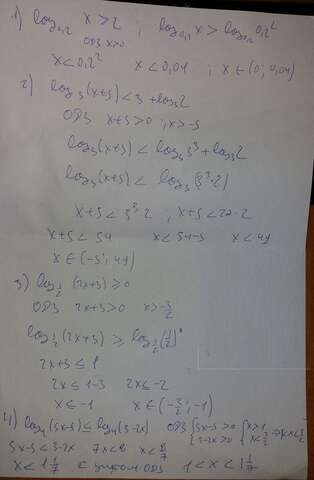 1) log₀,₂ x > 2 ; log₀,₂ x > log₀,₂ 0,2²
ОДЗ x>0
x < 0,2² x < 0,04 ; x ∈ (0; 0,04)
2) log₃(x+5) < 3 + log₃2
ОДЗ x+5>0 ; x>-5
log₃(x+5) < log₃3³ + log₃2
log₃(x+5) < log₃(3³·2)
x+5 < 3³·2 , x+5 < 27·2
x+5 < 54 x < 54-5 x < 49
x ∈ (-5; 49)
3) log½ (2x+3) ≥ 0
ОДЗ 2x+3>0 x>-3/2
log½ (2x+3) ≥ log½ (½)⁰
2x+3 ≤ 1
2x ≤ 1-3 2x ≤ -2
x ≤ -1 x ∈ (-3/2; -1)
4) log₄(5x-5) ≤ log₄(3-2x) ОДЗ {5x-5>0 3-2x>0 {x>1 x<3/2 ⇒ 1<x<3/2
5x-5 < 3-2x 7x<8 x<8/7
x < 1 1/7 с учетом ОДЗ 1 < x < 1 1/7